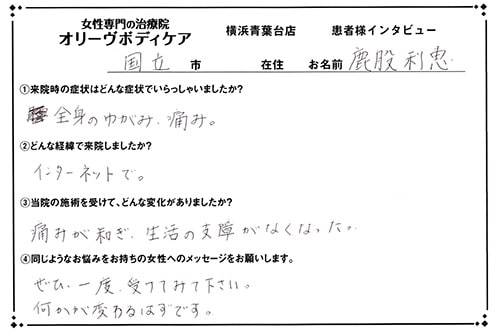 女性専門の治療院
オリーヴボディケア 横浜青葉台店 患者様インタビュー
国立 市 在住 お名前 鹿股利恵
①来院時の症状はどんな症状でいらっしゃいましたか?
全身のゆがみ、痛み。
②どんな経緯で来院しましたか?
インターネットで。
③当院の施術を受けて、どんな変化がありましたか?
痛みが和ぎ、生活の支障がなくなった。
④同じようなお悩みをお持ちの女性へのメッセージをお願いします。
ぜひ、一度、受けてみて下さい。
何かが変わるはずです。